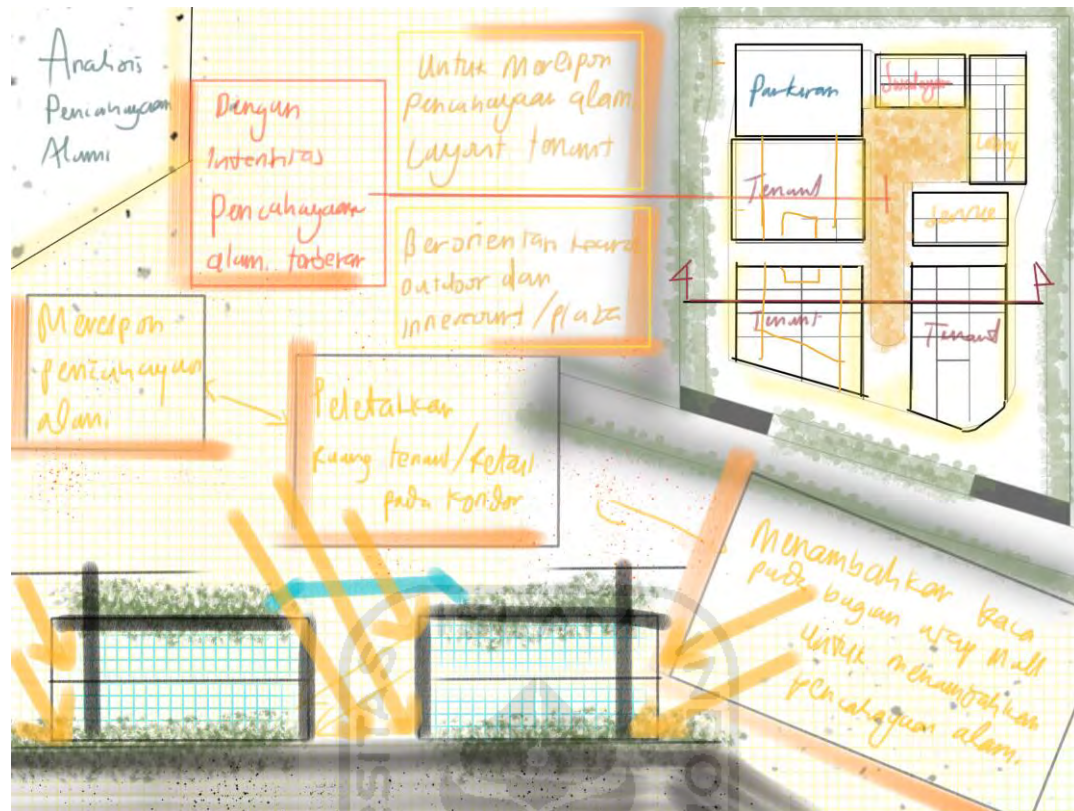 Analisis
Pencahayaan
Alami
Dengan
Intensitas
Pencahayaan
alam terbesar
Untuk Merespon
pencahayaan alam
Layout tenant
Berorientan kearah
outdoor dan
innercourt/plaza
Merespon
pencahayaan
alam.
Peletakkan
ruang tenant/Retail
pada koridor
Menambahkan kaca
pada bagian atap Mall
untuk menambahkan
pencahayaan alam.
Parkiran
Swalayan
Tenant
Service
Tenant
Tenant